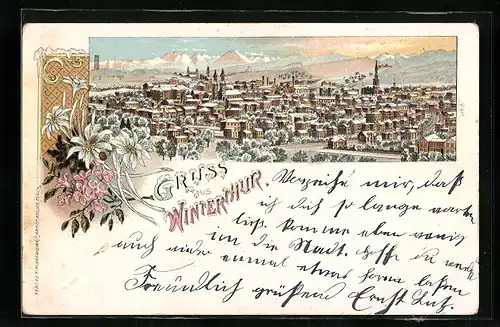 GRUSS
aus
WINTERTHUR.
Verzeihe mir, daß
ich dich so lange warten
ließ. Komme eben wenig
in die Stadt. Hoffe du werdest
auch wieder einmal etwas hören laßen
Freundlich grüßend Ernst